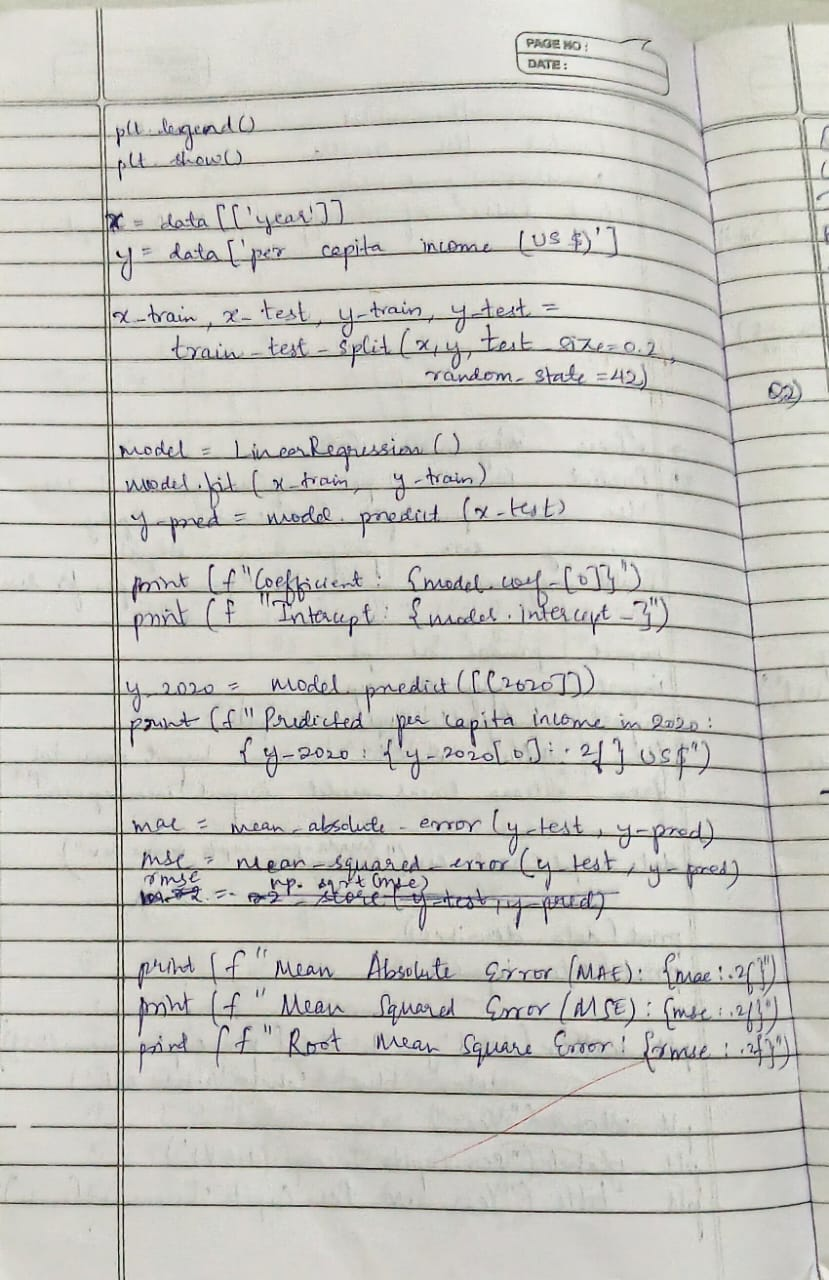 PAGE NO:
DATE:
plt.legend()
plt.show()
x = data[['year']]
y = data['per capita income (US $)']
x_train, x_test, y_train, y_test =
train_test_split(x, y, test_size=0.2,
random_state=42)
Q2)
model = LinearRegression()
model.fit(x_train, y_train)
y_pred = model.predict(x_test)
print(f"Coefficient: {model.coef_[0]}")
print(f "Intercept: {model.intercept_}")
y_2020 = model.predict([[2020]])
print(f"Predicted per capita income in 2020:
{y_2020: {y_2020[0]:.2f} US$")
mae = mean_absolute_error(y_test, y_pred)
mse = mean_squared_error(y_test, y_pred)
rmse = np.sqrt(mse)
print(f"Mean Absolute Error (MAE): {mae:.2f}")
print(f" Mean Squared Error (MSE): {mse:.2f}")
print(f" Root Mean Square Error: {rmse:.2f}")